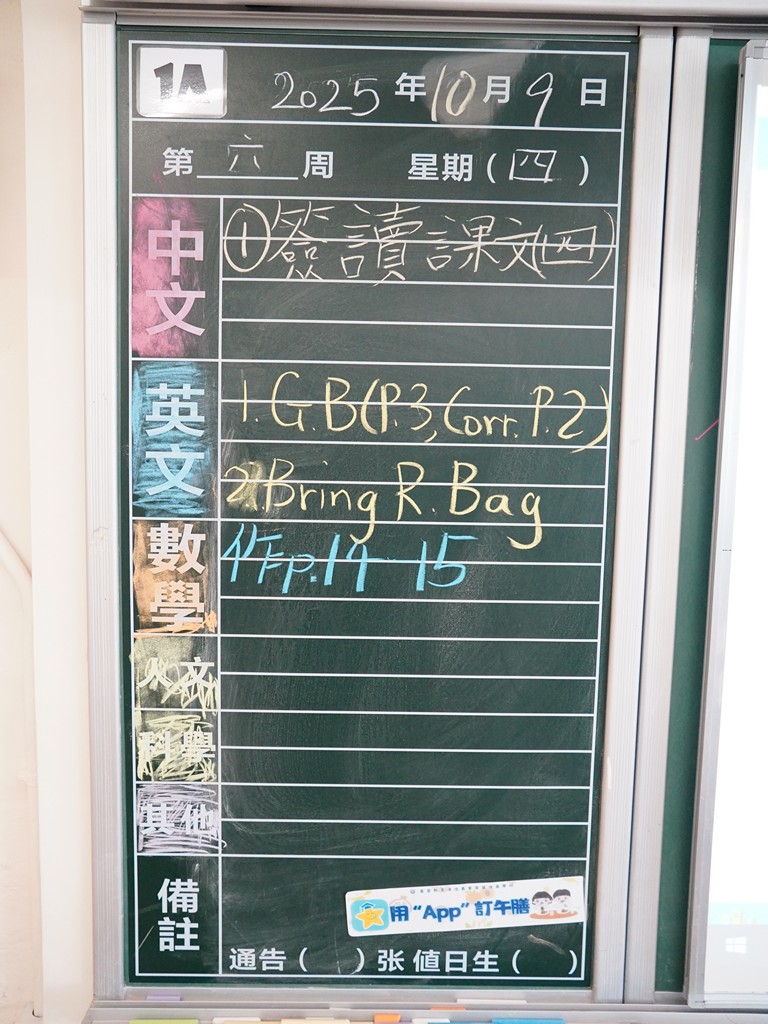 1A 2025年10月9日
第六周 星期(四)
中文 ①簽讀課文(四)
英文 1.G.B(P.3,Corr.P.2)
2.Bring R.Bag
數學 作p.14-15
人文
科學
其他
備註 用“App”訂午膳
通告( )张 值日生( )